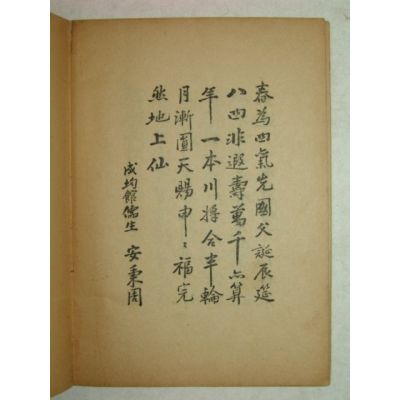 春為四氣先國父誕辰筵
八四非遐壽萬千亦算
年一本川擇合半輪
月漸圓天賜申々福完
然地上仙
成均館儒生 安秉周